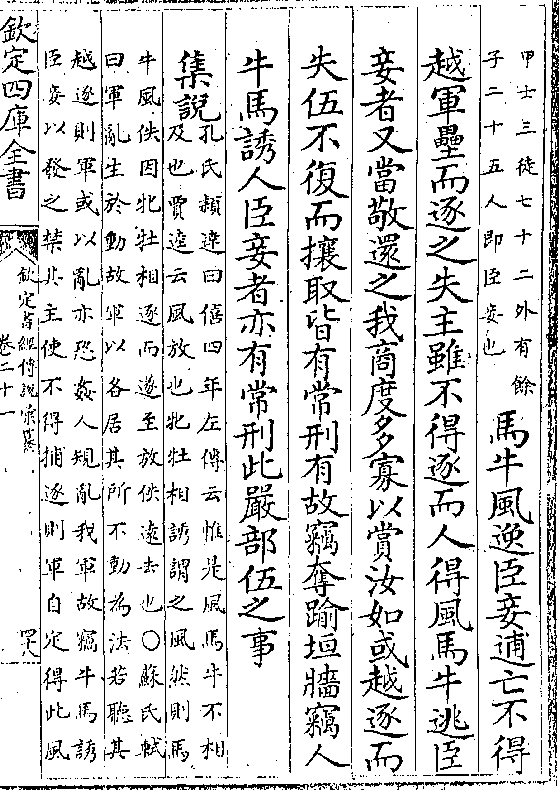 甲士三徒七十二外有餘
子二十五人即臣妾也
馬牛風逸臣妾逋亡不得
越軍壘而逐之失主雖不得逐而人得風馬牛逃臣
妾者又當敬還之我商度多寡以賞汝如或越逐而
失伍不復而攘取皆有常刑有故竊奪踰垣牆竊人
牛馬誘人臣妾者亦有常刑此嚴部伍之事
集說
孔氏頴達曰僖四年左傳云惟是風馬牛不相
及也賈逵云風放也牝牡相誘謂之風然則馬
牛風佚因牝牡相逐而遂至放佚逺去也○蘇氏軾
曰軍亂生於動故軍以各居其所不動為法若聽其
越逐則軍或以亂亦恐姦人規亂我軍故竊牛馬誘
臣妾以發之禁其主使不得捕逐則軍自定得此風
欽定四庫全書
欽定書經傳說彙纂
卷二十一
四六